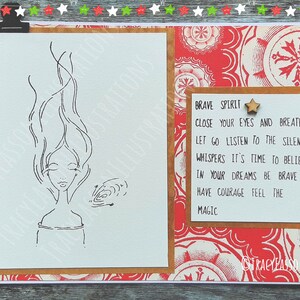 BRAVE SPIRIT
CLOSE YOUR EYES AND BREATH
LET GO LISTEN TO THE SILEN
WHISPERS IT'S TIME TO BELIE
IN YOUR DREAMS BE BRAVE
HAVE COURAGE FEEL THE
MAGIC